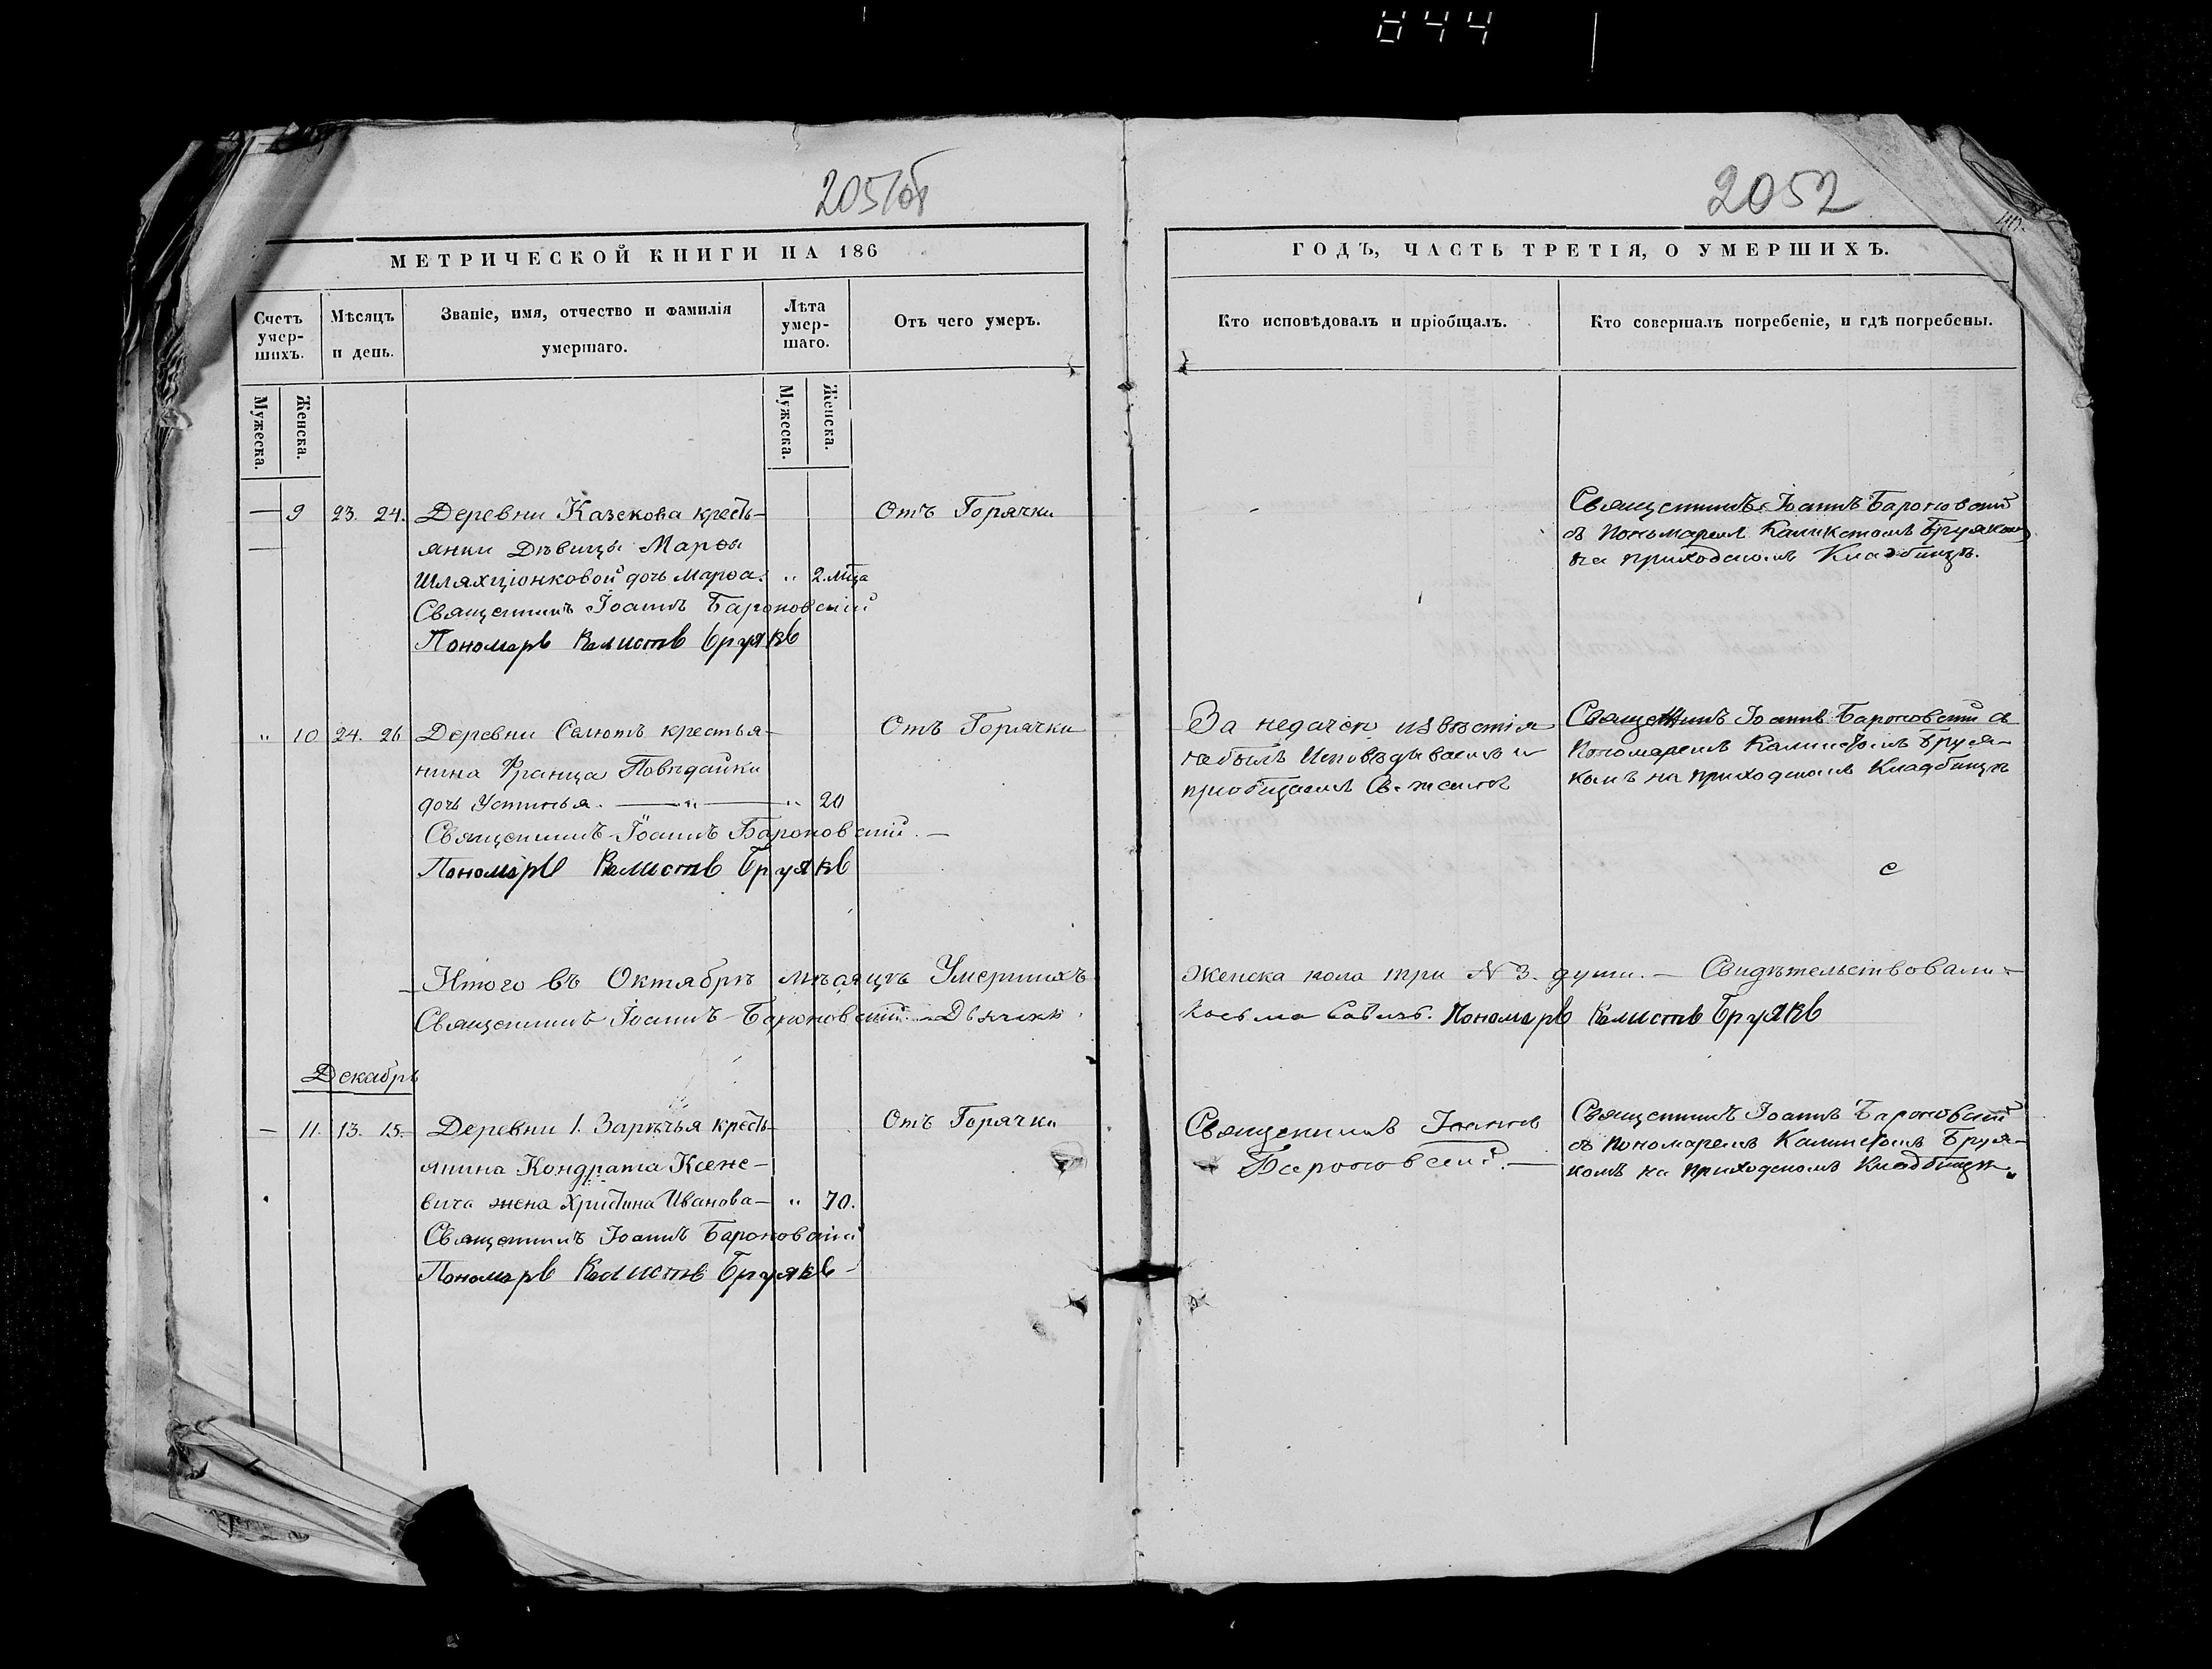 844
2051об
2052
МЕТРИЧЕСКОЙ КНИГИ НА 186
Счетъ умер-шихъ.
Мѣсяцъ и день.
Званіе, имя, отчество и фамилія умершаго.
Лѣта умер-шаго.
Отъ чего умеръ.
Мужеска.
Женска.
Мужеска.
Женска.
— 9 23. 24. Деревни Казекова кресть- Отъ Горячки
— янки Дѣвицы Марѳы
Шляхціонковой дочь Марѳа. " 2. мца
Священникъ Іоаннъ Бароновскій
Пономарь Калистъ Бруякъ
" 10 24. 26 Деревни Салютъ крестья- Отъ Горячки
нина Франца Повидайки
дочь Устинья. — " — " 20
Священникъ Іоаннъ Бароновскій. —
Пономарь Калистъ Бруякъ
Итого въ Октябрѣ мѣсяцѣ Умершихъ
Священникъ Іоаннъ Бароновскій. — Дьячекъ
Декабрь
— 11. 13. 15. Деревни 1. Зарѣчья кресть- Отъ Горячки
янина Кондрата Ксене-
вича жена Христина Иванова — " 70.
Священникъ Іоаннъ Бароновскій
Пономарь Калистъ Бруякъ —
ГОДЪ, ЧАСТЬ ТРЕТІЯ, О УМЕРШИХЪ.
Кто исповѣдовалъ и пріобщалъ.
Кто совершалъ погребеніе, и гдѣ погребены.
Священникъ Іоаннъ Бароновскій
съ Пономаремъ Каликстомъ Бруякомъ
на приходскомъ Кладбищѣ.
За недачею извѣстія
небылъ Исповѣдываемъ и
пріобщаемъ Св.
Священникъ Іоаннъ Бароновскій съ
Пономаремъ Калистомъ Бруя-
комъ на приходскомъ Кладбищѣ
с
женска пола три N 3. души. — Свидѣтельствовали —
Косьма Пономарь Калистъ Бруякъ
Священникъ Іоаннъ
Бароновскій. —
Священникъ Іоаннъ Бароновскій
съ пономаремъ Калистомъ Бруя-
комъ на приходскомъ Кладбищѣ.